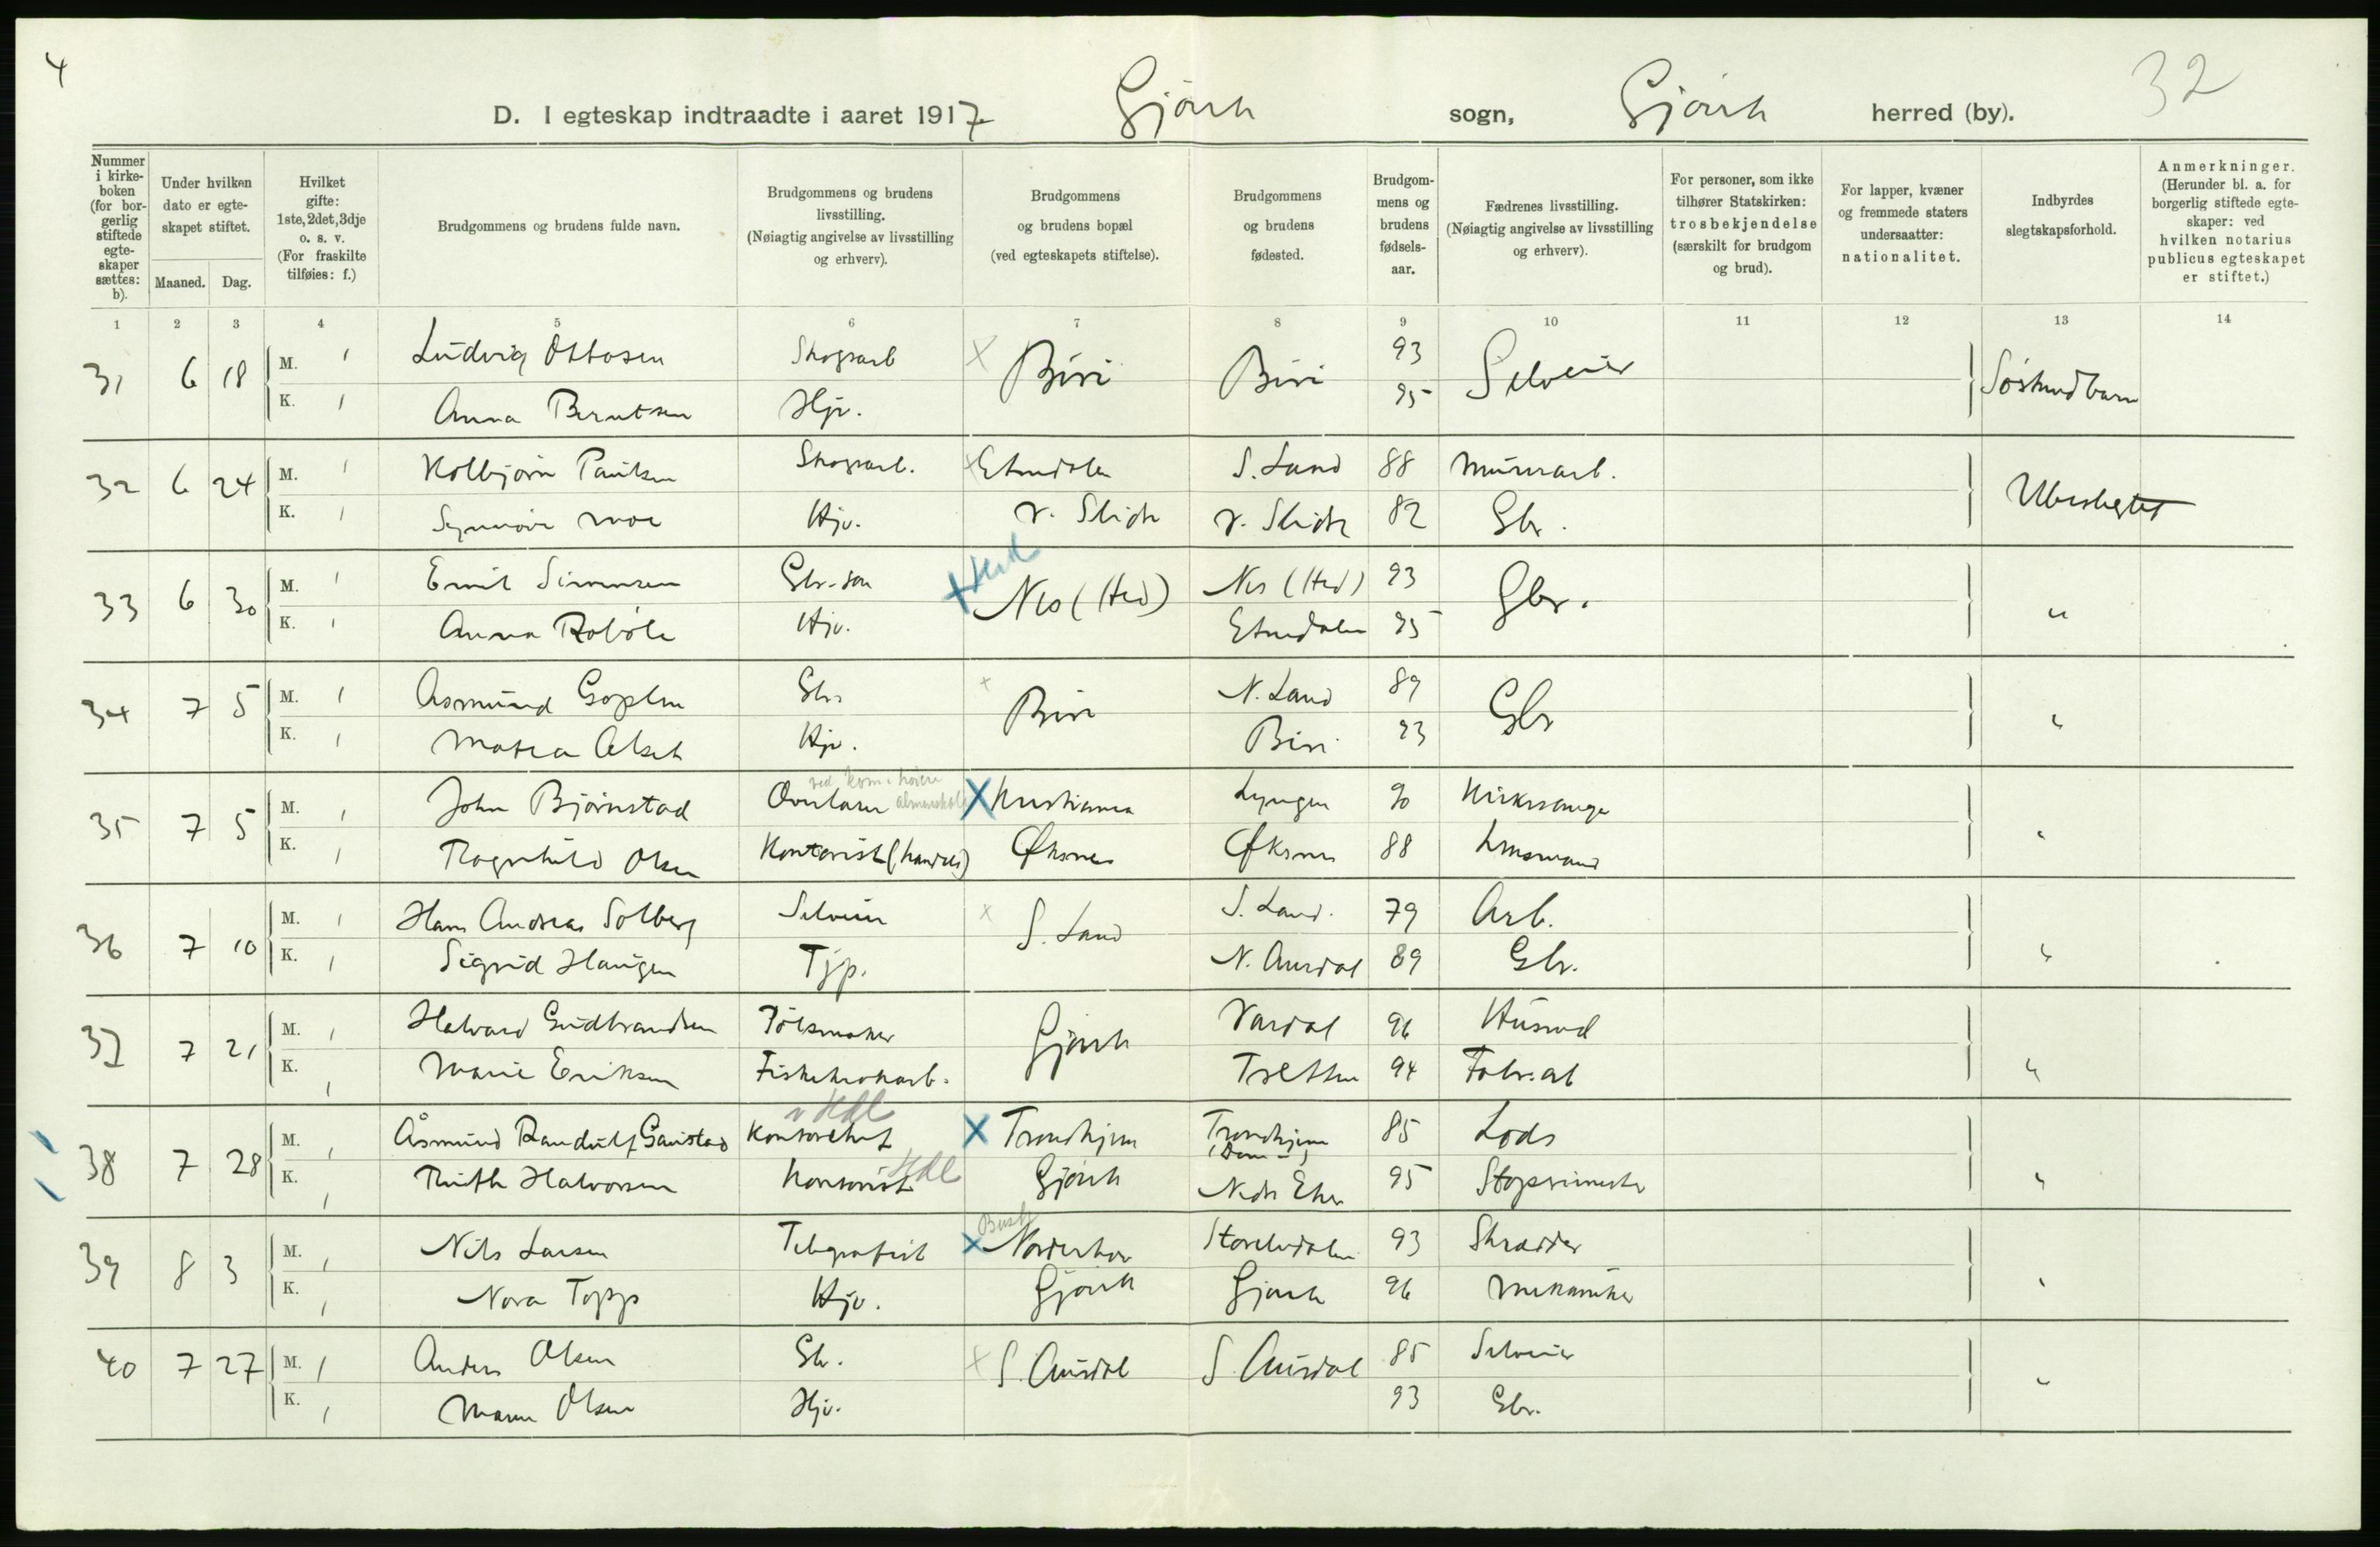 4
32
D. I egteskap indtraadte i aaret 1917 Gjövik sogn, Gjövik herred (by).
Nummer i kirke-boken (for bor-gerlig stiftede egte-skaper sættes: b).
Under hvilken dato er egte-skapet stiftet.
Maaned. Dag.
Hvilket gifte: 1ste, 2det, 3dje o. s. v. (For fraskilte tilføies: f.)
Brudgommens og brudens fulde navn.
Brudgommens og brudens livsstilling. (Nøiagtig angivelse av livsstilling og erhverv).
Brudgommens og brudens bopæl (ved egteskapets stiftelse).
Brudgommens og brudens fødested.
Brudgom-mens og brudens fødsels-aar.
Fædrenes livsstilling. (Nøiagtig angivelse av livsstilling og erhverv).
For personer, som ikke tilhører Statskirken: trosbekjendelse (særskilt for brudgom og brud).
For lapper, kvæner og fremmede staters undersaatter: nationalitet.
Indbyrdes slegtskapsforhold.
Anmerkninger. (Herunder bl. a. for borgerlig stiftede egte-skaper: ved hvilken notarius publicus egteskapet er stiftet.)
1 2 3 4 5 6 7 8 9 10 11 12 13 14
31 6 18 M. 1 Ludvig Ottosen Skogsarb x Biri Biri 93 Selveier Søskendbarn
K. 1 Anna Berntsen Hjv. 95
32 6 24 M. 1 Kolbjörn Paulsen Skogsarb. x Etnedalen S. Land 88 Murerarb. Ubeslegtet
K. 1 Synnöve Moe Hjv. V. Slidre V. Slidre 82 Gbr.
33 6 30 M. 1 Emil Simensen Gbr. sön x Hed Nes (Hed) Nes (Hed) 93 Gbr. "
K. 1 Anna Robøle Hjv. Etnedalen 95
34 7 5 M. 1 Åsmund Goplen Gbr x Biri N. Land 89 Gbr "
K. 1 Matea Alset Hjv. Biri 93
ved kom. höiere almenskole
35 7 5 M. 1 John Björnstad Overlærer x Kristiania Lyngen 90 Kirkesanger "
K. 1 Ragnhild Olsen Kontorist (handels) Øksnes Øksnes 88 Lensmand
36 7 10 M. 1 Hans Andreas Solberg Selveier x S. Land S. Land. 79 Arb. "
K. 1 Sigrid Haugen Tjp. N. Aurdal 89 Gbr.
37 7 21 M. 1 Halvard Gudbrandsen Pölsemaker Gjövik Vardal 96 Husmd "
K. 1 Marie Eriksen Fiskekrokarb. Tretten 94 Fabr. arb
v Hdl
38 7 28 M. 1 Åsmund Randulf Gaustad Kontorchef x Trondhjem Trondhjem (Dom-) 85 Lods "
K. 1 Ruth Halvorsen Kontorist Hdl Gjövik Nedre Eker 95 Stopsrimester
Busk
39 8 3 M. 1 Nils Larsen Telegrafist x Norderhov Storelvdalen 93 Skrædder "
K. 1 Nora Topp Hjv. Gjövik Gjövik 96 Mekaniker
40 7 27 M. 1 Anders Olsen Gbr. x S. Aurdal S. Aurdal 85 Selveier "
K. 1 Olsen Hjv. 93 Gbr.